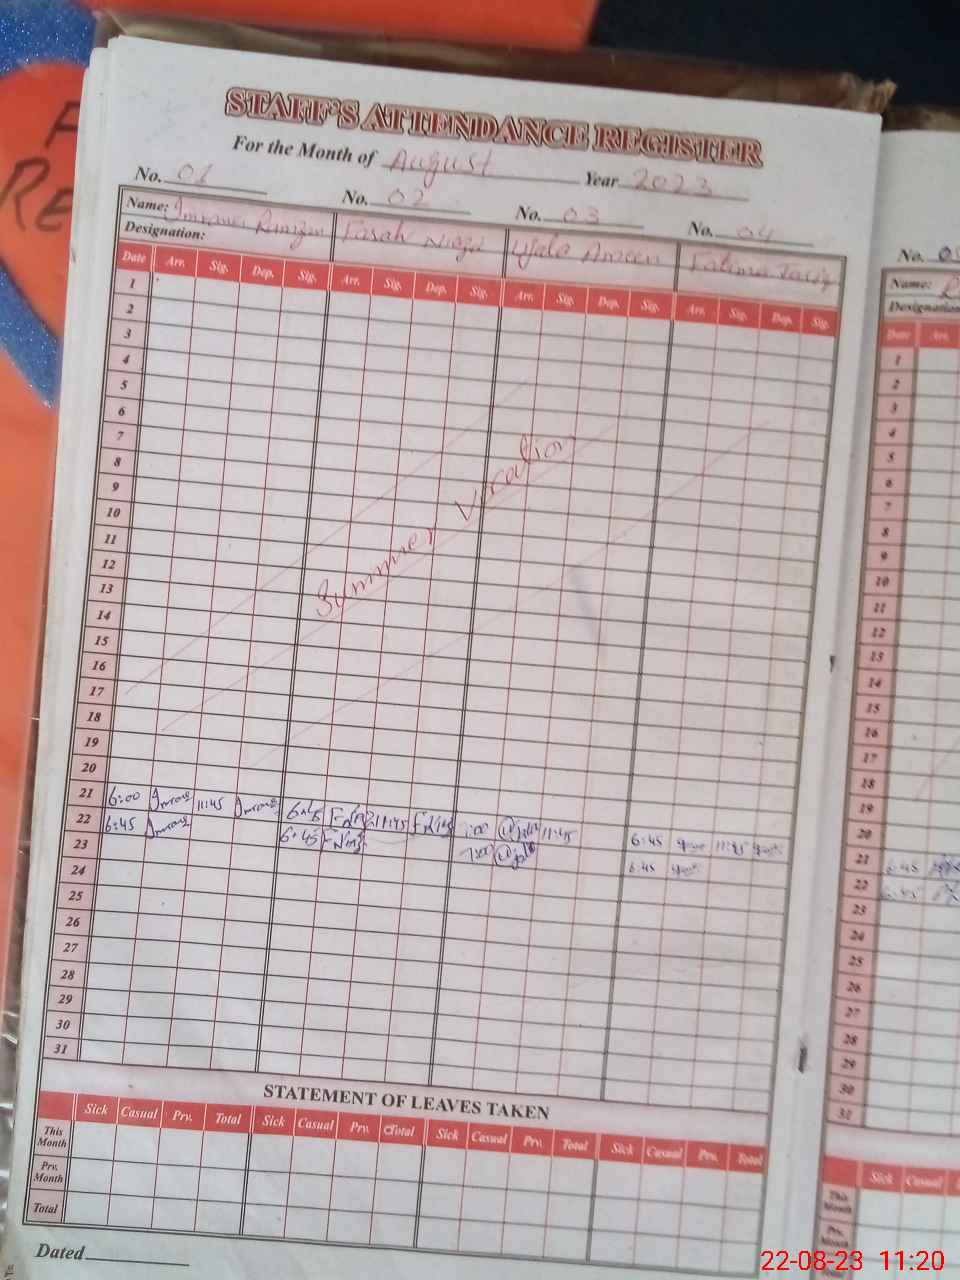 STAFF'S ATTENDANCE REGISTER
For the Month of August Year 2023
No. 01 No. 02 No. 03 No. 04
Name: Farah Niazi Ujala Ameen Fatima Tariq
Designation:
Date Arr. Sig. Dep. Sig. Arr. Sig. Dep. Sig. Arr. Sig. Dep. Sig. Arr. Sig. Dep. Sig.
1
2
3
4
5
6
7
8
9
10
11
12
13
14
15
16
17
18
19
20
Summer Vacation
21 6:00 11:45 6:45 11:45 7:00 11:45 6:45 11:45
22 6:45 6:45 7:00 6:45
23
24
25
26
27
28
29
30
31
STATEMENT OF LEAVES TAKEN
Sick Casual Prv. Total Sick Casual Prv. Total Sick Casual Prv. Total Sick Casual Prv. Total
This Month
Prv. Month
Total
Dated
No. 05
Name:
Designation
Date Arr.
1
2
3
4
5
6
7
8
9
10
11
12
13
14
15
16
17
18
19
20
21 6:45
22 6:45
23
24
25
26
27
28
29
30
31
Sick Casual
This Month
Prv. Month
22-08-23 11:20